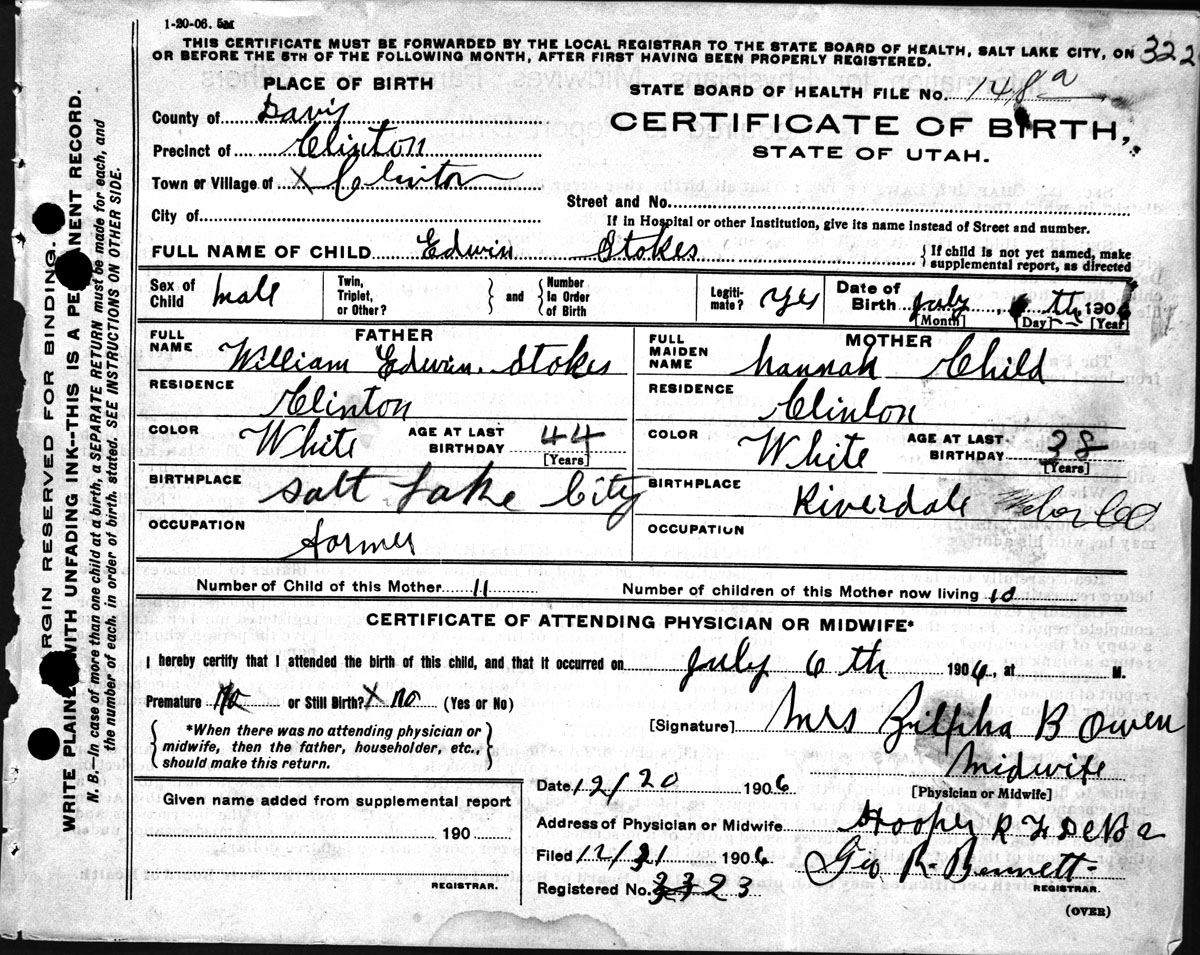 1-20-06. 5M
THIS CERTIFICATE MUST BE FORWARDED BY THE LOCAL REGISTRAR TO THE STATE BOARD OF HEALTH, SALT LAKE CITY, ON
OR BEFORE THE 5TH OF THE FOLLOWING MONTH, AFTER FIRST HAVING BEEN PROPERLY REGISTERED.
322
PLACE OF BIRTH
STATE BOARD OF HEALTH FILE No. 148a
County of Davis
CERTIFICATE OF BIRTH,
Precinct of Clinton
STATE OF UTAH.
Town or Village of X Clinton
Street and No.
City of
If in Hospital or other Institution, give its name instead of Street and number.
FULL NAME OF CHILD Edwin Stokes
{If child is not yet named, make
supplemental report, as directed
Sex of Child male Twin, Triplet, or Other? } and { Number In Order of Birth Legiti- mate? Yes Date of Birth July 6th 1906
[Month] [Day] [Year]
FATHER
FULL NAME William Edwin Stokes
MOTHER
FULL MAIDEN NAME Hannah Child
RESIDENCE Clinton
RESIDENCE Clinton
COLOR White AGE AT LAST BIRTHDAY 44 [Years]
COLOR White AGE AT LAST BIRTHDAY 38 [Years]
BIRTHPLACE Salt Lake City
BIRTHPLACE Riverdale Weber Co
OCCUPATION Former
OCCUPATION
Number of Child of this Mother 11 Number of children of this Mother now living 10
CERTIFICATE OF ATTENDING PHYSICIAN OR MIDWIFE*
I hereby certify that I attended the birth of this child, and that it occurred on July 6th 1906, at M.
Premature No or Still Birth? X no (Yes or No)
[Signature] Mrs Zilpha B Owen
{ *When there was no attending physician or
midwife, then the father, householder, etc.,
should make this return. }
Midwife
[Physician or Midwife]
Date 12/20 1906
Given name added from supplemental report
190
REGISTRAR.
Address of Physician or Midwife Hooper R F D
Filed 12/21 1906
Geo R. Bennett
REGISTRAR.
Registered No. 23
(OVER)
MARGIN RESERVED FOR BINDING.
WRITE PLAINLY WITH UNFADING INK--THIS IS A PERMANENT RECORD.
N. B.--In case of more than one child at a birth, a SEPARATE RETURN must be made for each, and
the number of each, in order of birth, stated. SEE INSTRUCTIONS ON OTHER SIDE.